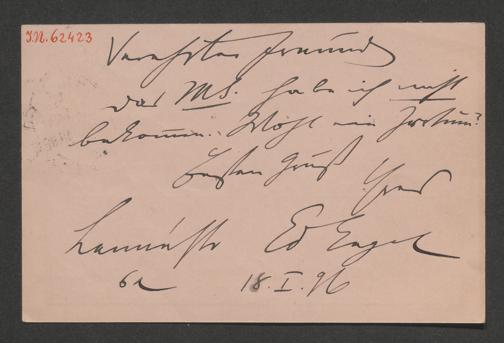 J.N. 62423
Verehrter Freund
das MS. habe ich nicht
bekommen. Wohl ein Irrtum?
Besten Gruß
Ihres
Lennéstr Ed Engel
6a 18. I. 96